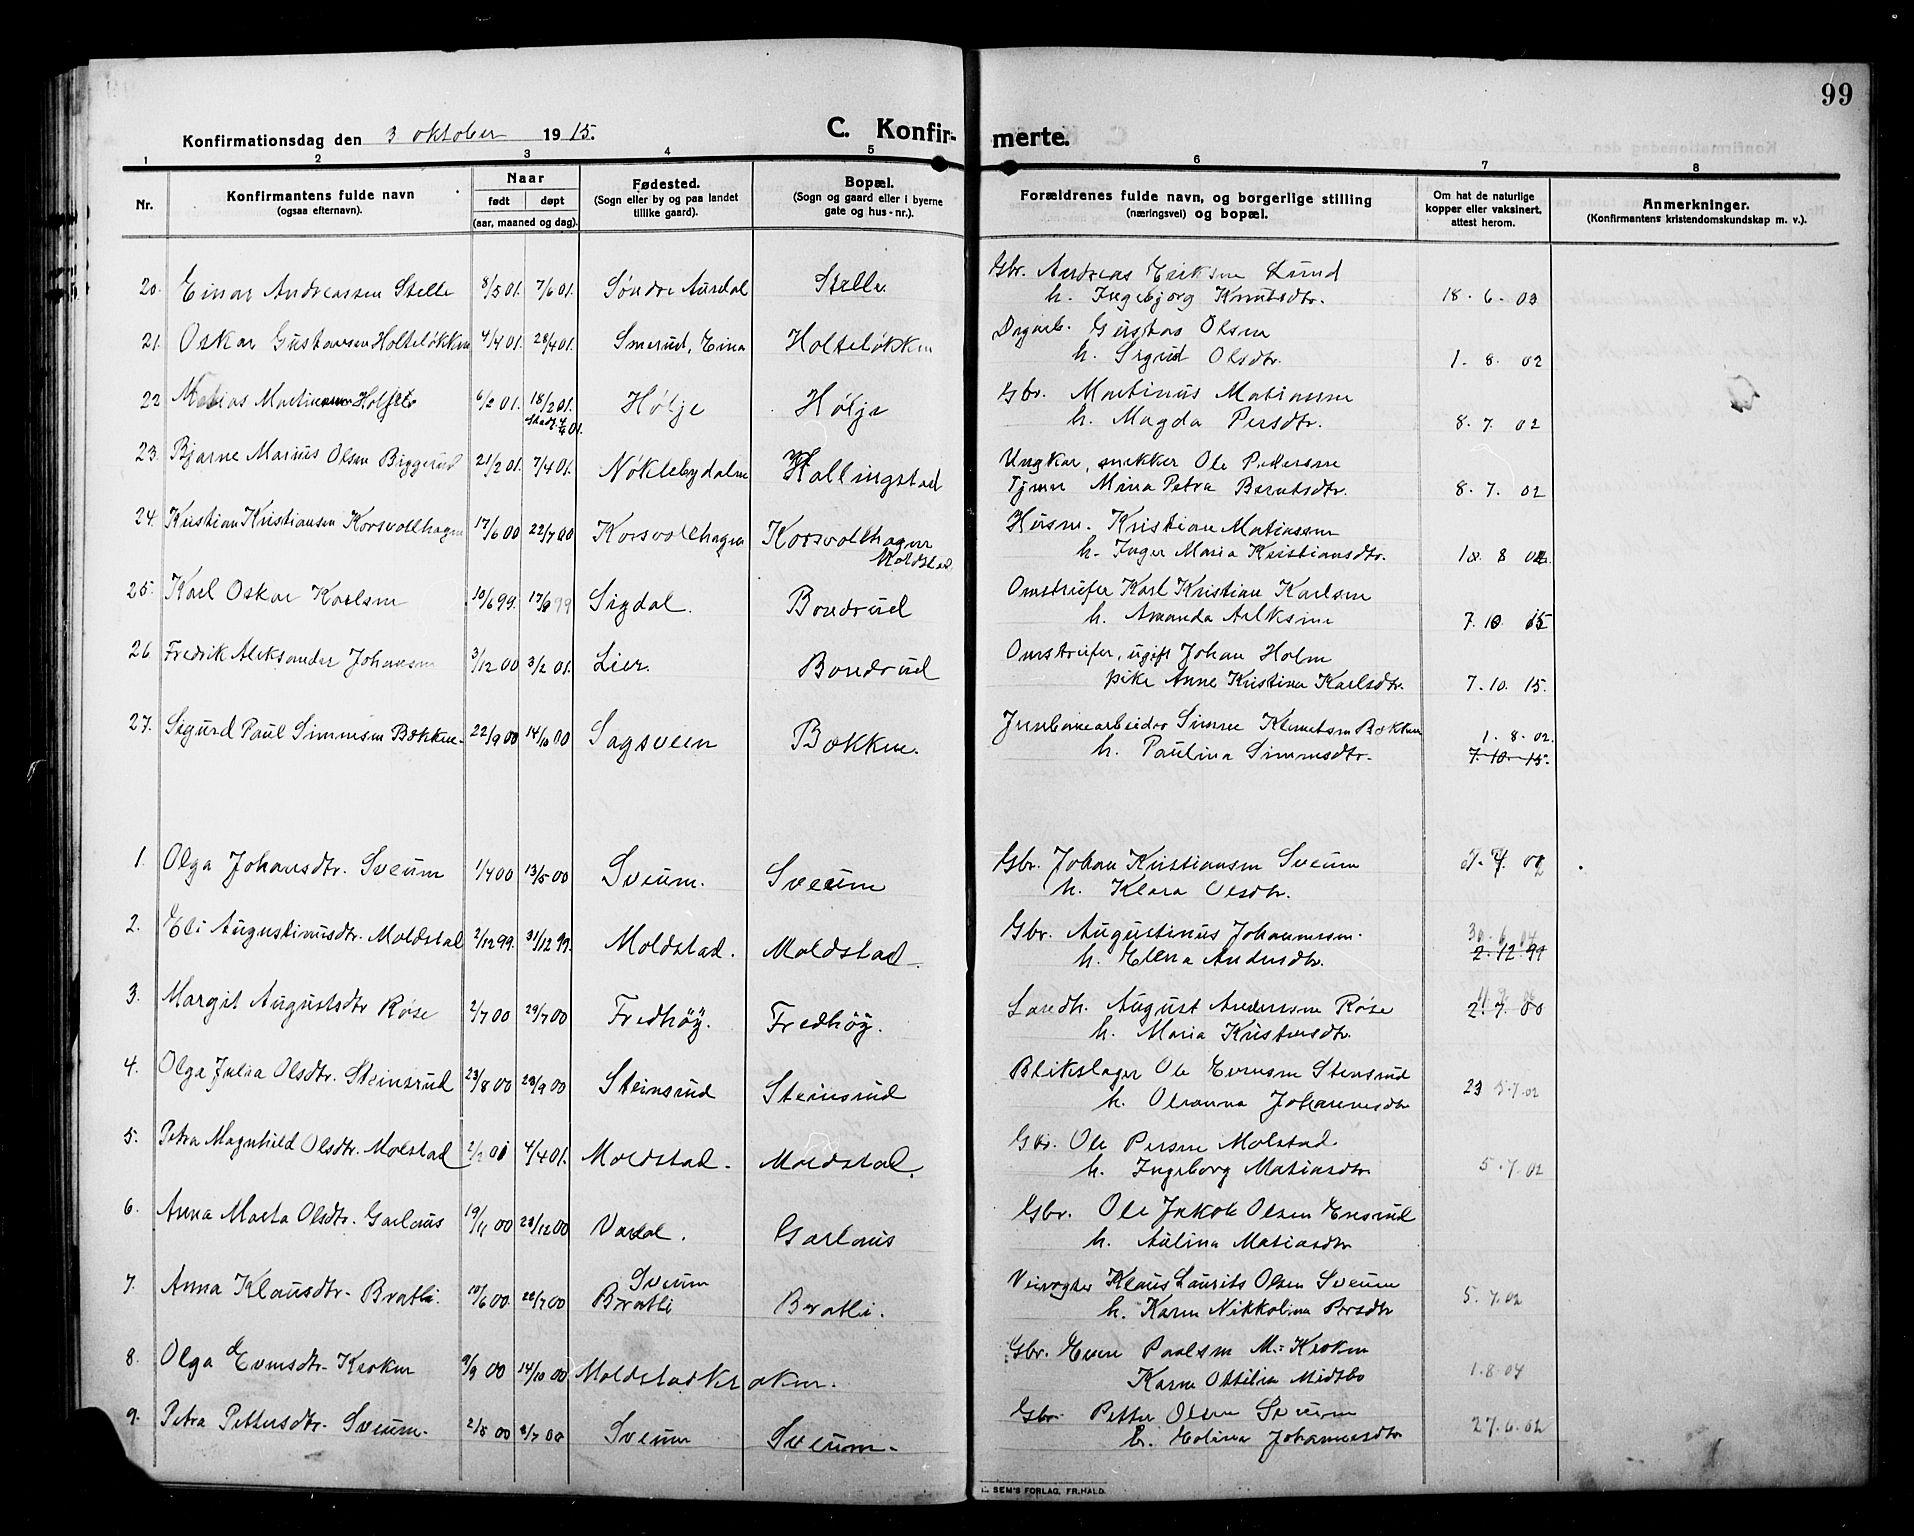 99
Konfirmationsdag den 3 oktober 1915.
C. Konfir- merte.
1 2 3 4 5 6 7 8
Nr.
Konfirmantens fulde navn
(ogsaa efternavn).
Naar
født døpt
(aar, maaned og dag).
Fødested.
(Sogn eller by og paa landet
tillike gaard).
Bopæl.
(Sogn og gaard eller i byerne
gate og hus-nr.).
Forældrenes fulde navn, og borgerlige stilling
(næringsvei) og bopæl.
Om hat de naturlige
kopper eller vaksinert,
attest herom.
Anmerkninger.
(Konfirmantens kristendomskundskap m. v.).
20. Einar Andreassen Stelle 8/5 01. 7/6 01. Søndre Aurdal Stelle Gbr. Andreas Eriksen Lund
h. Ingebjørg Knutsdtr. 18. 6. 03
21. Oskar Gustavsen Holteløkken 4/4 01. 28/4 01. Smerud, Eina Holteløkken Dagarb. Gustav Olsen
h. Sigrid Olsdtr. 1. 8. 02
22 Matias Martinsen Høljeto 6/2 01. 18/2 01. Hølje Hølje Gbr. Martinus Matiassen
h. Magda Persdtr. 8. 7. 02
23. Bjarne Marius Olsen Biggerud 21/2 01. 7/4 01. Nøklebydalen Hallingstad Ungkar, snekker Ole Pedersen
Tjener Mina Petra Berntsdtr. 8. 7. 02
24. Kristian Kristiansen Korsvollhagen 17/6 00 22/7 00 Korsvollhagen Korsvollhagen
Moldstad. Husm. Kristian Matiassen
h. Inger Maria Kristiansdtr. 18. 8 02
25. Karl Oskar Karlsen 10/6 99. 17/9 99 Sigdal. Bondrud Omstreifer Karl Kristian Karlsen
h. Amanda Aleksine 7. 10 15
26 Fredrik Aleksander Johansen 3/12 00 3/2 01. Lier. Bondrud Omstreifer, ugift Johan Holm
pike Anne Kristina Karlsdtr. 7. 10. 15.
27. Sigurd Paul Simensen Bakken- 22/9 00 14/10 00 Sagsveen Bakken. Jernbanearbeider Simen Klemetsen Bakken
h. Paulina Simensdtr. 1. 8. 02.
7. 10. 15.
1. Olga Johansdtr. Sveum 1/4 00 13/5 00 Sveum. Sveum Gbr. Johan Kristiansen Sveum
h. Klara Olsdtr.
2. Eli Augustinusdtr. Moldstad 2/12 99. 31/12 99. Moldstad. Moldstad. Gbr. Augustinus Johannessen.
h. Elena Andersdtr. 30. 6. 04
2. 12. 99
3. Margit Augustsdtr Røse 2/7 00 29/7 00 Fredhøy. Fredhøy. Landh. August Andersen Røse
h. Maria Kristensdtr. 2. 7. 00
4. Olga Julia Olsdtr. Steinsrud 23/8 00 23/9 00 Steinsrud Steinsrud Blikslager Ole Evensen Stensrud
h. Oleanna Johannesdtr 23 5. 7. 02
5. Petra Magnhild Olsdtr. Molstad 2/2 01 4/4 01. Moldstad. Moldstad. Gbr. Ole Persen Molstad.
h. Ingeborg Matiasdtr. 5. 7. 02
6. Anna Marta Olsdtr. Garlaus 19/11 00 23/12 00 Vardal. Garlaus Gbr. Ole Jakob Olsen Enesrud
h. Aulina Matiasdtr
7. Anna Klausdtr- Bratli. 10/6 00. 22/7 00 Sveum
Bratli Bratli. Veivogter Klaus Laurits Olsen Sveum
h. Karen Nikkolina Persdtr 5. 7. 02
8. Olga Evensdtr- Kroken 9/9 00 14/10 00 Moldstadkroken. Gbr. Even Paulsen M.-Kroken
Karen Ottilia Midtbo 1. 8. 04
9. Petra Pettersdtr. Sveum. 2/5 00 8/7 00 Sveum Sveum- Gbr. Petter Olsen Sveum
h. Eolina Johannesdtr 27. 6. 02
SEM'S FORLAG, FR.HALD.